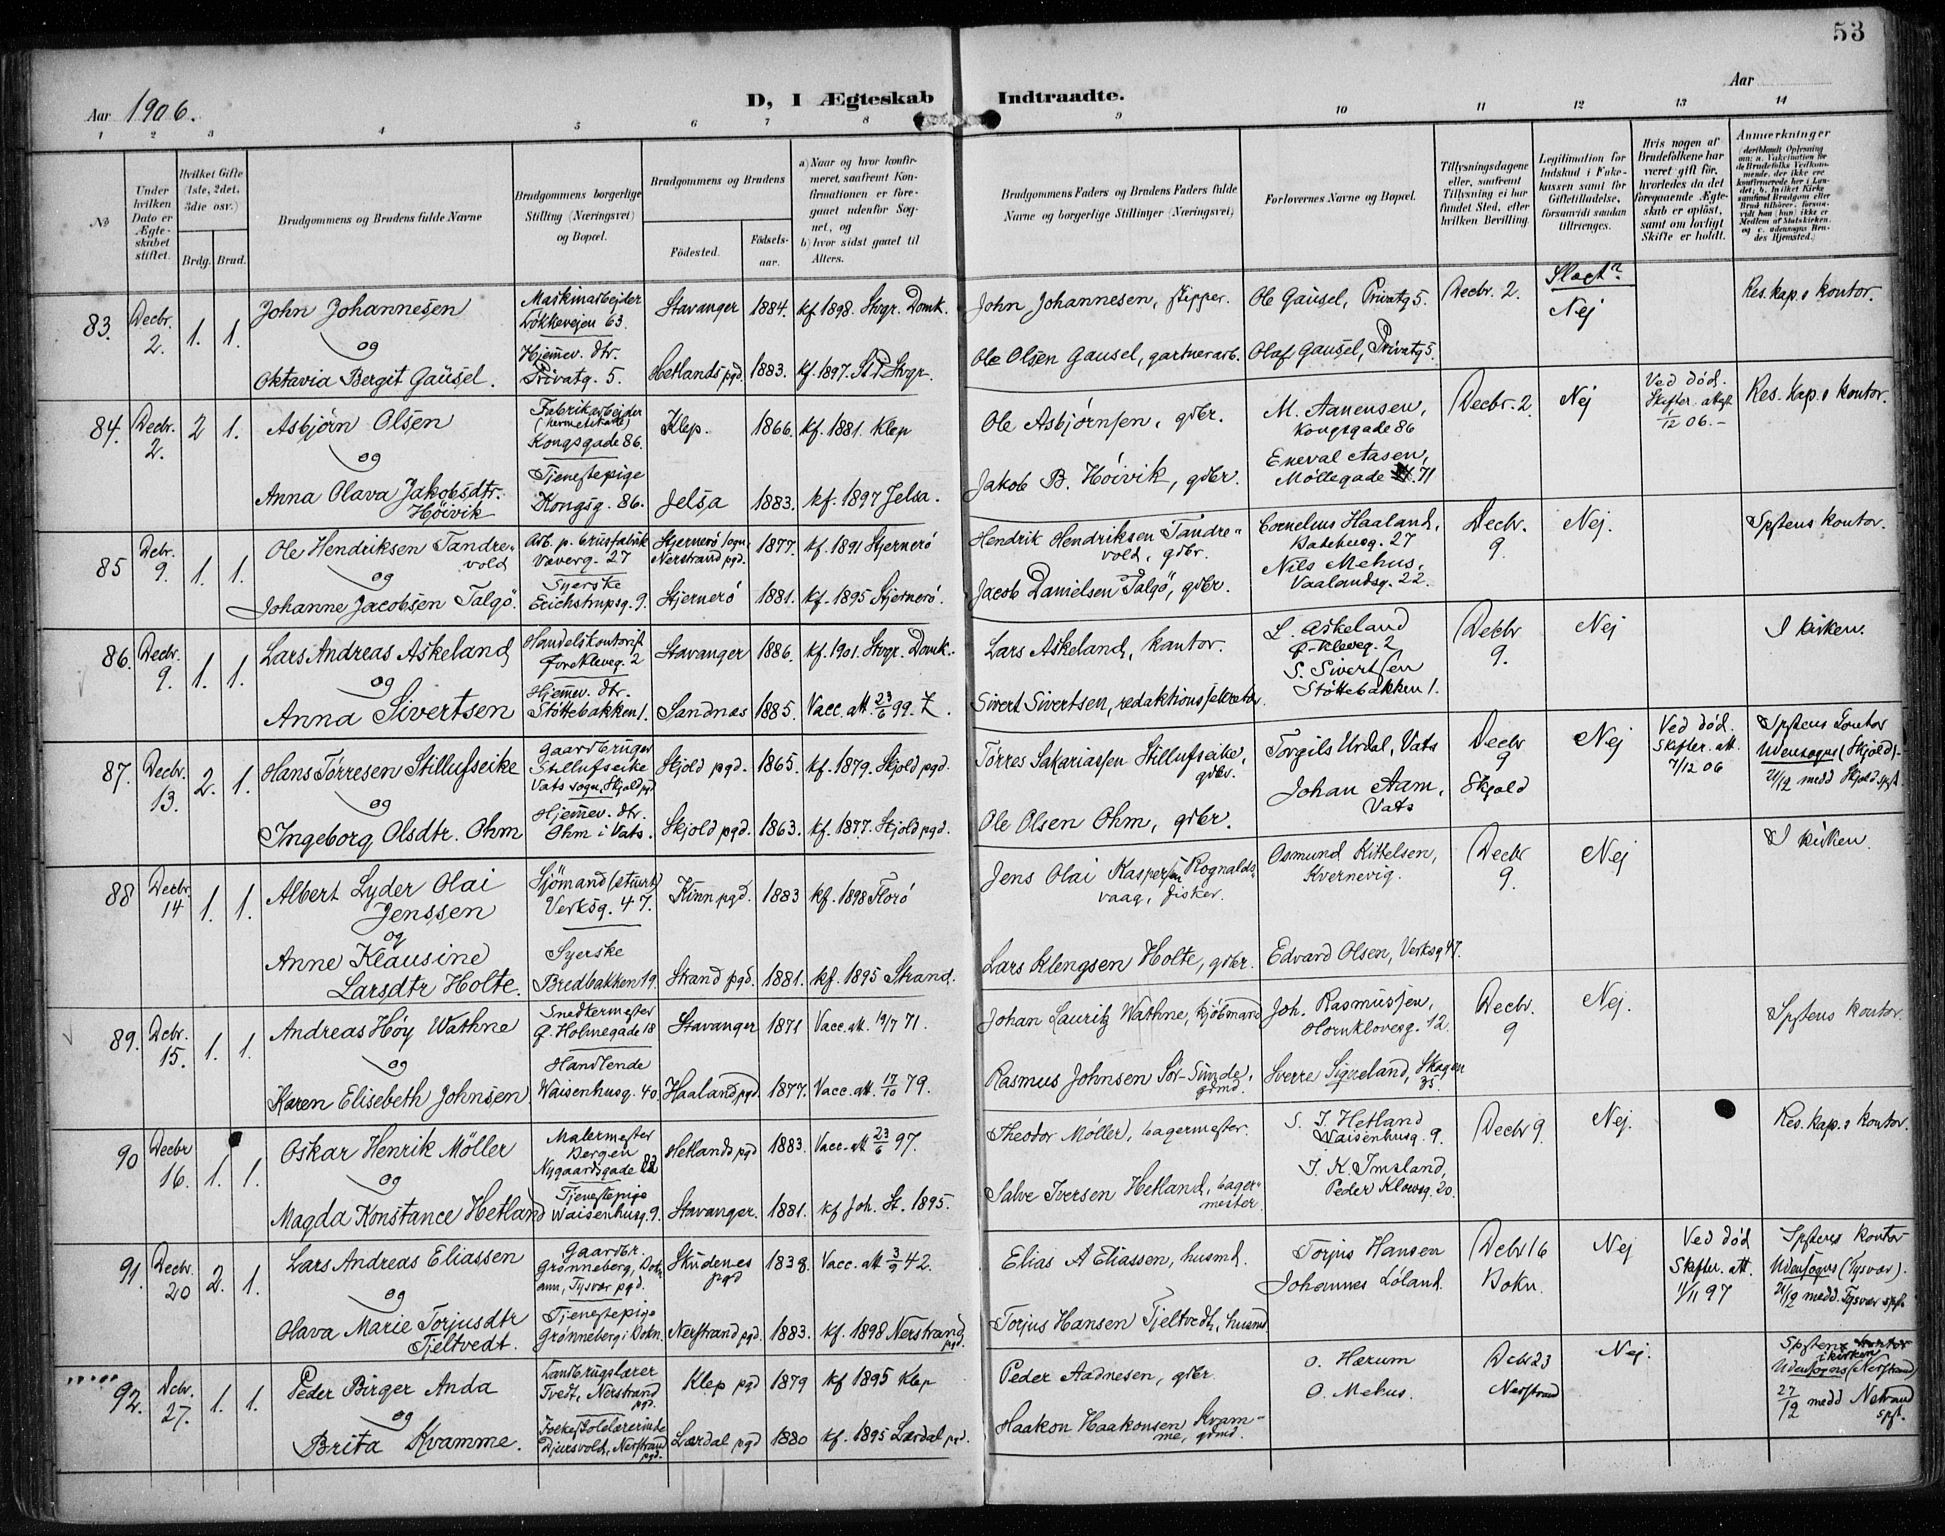 53
Aar 1906.
D, I Ægteskab Indtraadte.
Aar
1 2 3 4 5 6 7 8 9 10 11 12 13 14
No
Under hvilken Dato er Ægteskabet stiftet.
Hvilket Gifte (1ste, 2det, 3die osv.)
Brdg. Brud.
Brudgommens og Brudens fulde Navne
Brudgommens borgerlige Stilling (Næringsvei) og Bopæl.
Brudgommens og Brudens
Födested. Födselsaar.
a) Naar og hvor konfirmeret, saafremt Konfirmationen er foregaaet udenfor Sognet, og
b) hvor sidst gaaet til Alters.
Brudgommens Faders og Brudens Faders fulde Navne og borgerlige Stillinger (Næringsvei)
Forlovernes Navne og Bopæl.
Tillysningsdagene eller, saafremt Tillysning ei har fundet Sted, efter hvilken Bevilling.
Legitimation for Indskud i Enkekassen samt for Giftetilladelse, forsaavidt saadan tiltrænges.
Hvis nogen af Brudefolkene har været gift för, hvorledes da det foregaaende Ægteskab er oplöst, samt om lovligt Skifte er holdt.
Anmærkninger
Slægt?
83. Decbr. 2. 1. 1. John Johannesen Maskinarbejder Løkkevejen 63. Stavanger 1884. kf 1898. Stvgr. Domk. John Johannesen, skipper. Ole Gausel, Privatg 5. Decbr. 2. Nej Res. kap.s kontor.
og
Oktavia Bergit Gausel. Hjemmev. dtr. Privatg. 5. Hetlands pgd. 1883. kf. 1897. St. P. Stvgr. Ole Olsen Gausel, gartnerarb. Olaf Gausel, Privatg 5.
84. Decbr. 2. 2 1. Asbjörn Olsen Fabrikarbejder (hermetikfabr) Kongsgade 86. Klep. 1866. kf. 1881. Klep Ole Asbjørnsen, gdbr. M. Aanensen, Kongsgade 86 Decbr. 2. Nej Ved död. Skifter. attest /12 06.- Res. Kap.s kontor.
og
Anna Olava Jakobsdtr. Höivik Tjenestepige Kongsg. 86. Jelsa 1883. kf. 1897 Jelsa. Jakob B. Höivik, gdbr. Eneval Aasen, Møllegade 71
85 Dcbr. 9. 1. 1. Ole Hendriksen Tandrevold Arb. p. Vaverg. 27 Stjernerö sogn, Nerstrand pgd. 1877. kf. 1891 Stjernerö Hendrik Hendriksen Tandrevold, gdbr. Cornelius Haaland, 27 Decbr. 9. Nej. Spstens kontor.
og
Johanne Jacobsen Talgö. Syerske Erichstrupsg. 9. Stjernerö 1881. kf. 1895 Stjernerö. Jacob Danielsen Talgö, gdbr. Nils Mehus, Vaalandsg. 22.
86. Decbr. 9. 1. 1. Lars Andreas Askeland Handelskontorist Stavanger 1886. kf. 1901. Stvgr. Domk. Lars Askeland, kantor. L. Askeland 2 Decbr 9. Nej I kirken.
og
Anna Sivertsen Hjemmev. dtr. Støttebakken 1. Sandnæs 1885. Vacc. att. 23/6 99. Sivert Sivertsen, redaktionssekretær S. Sivertsen Støttebakken 1.
87. Decbr. 13. 2. 1. Hans Törresen Stillufseike Gaardbruger Stillufseike Vats sogn, Skjold pgd. Skjold pgd. 1865. kf. 1879. Skjold pgd. Törres Sakariassen Stillufseike, gdbr. Torgils Urdal, Vats Decbr 9 Skjold Nej Ved död. Skifter. att. 7/12 06 Spstens kontor Udensogns (Skjold). 21/12 medd Skjold spst.
og
Ingeborg Olsdtr. Ohm Hjemmev. dtr. Ohm i Vats. Skjold pgd. 1863. kf. 1877. Skjold pgd. Ole Olsen Ohm, gdbr. Johan Aam, Vats
88 Decbr. 14 1. 1. Albert Lyder Olai Jenssen Sjömand (stuert) Verksg. 47. Kinn pgd. 1883 kf. 1898 Florö Jens Olai Kaspersen Rognaldsvaag, fisker. Osmund Kittelsen, Kvernevig. Decbr 9. Nej I kirken.
og
Anne Klausine Larsdtr Holte. Syerske Bredbakken 19. Strand pgd. 1881. kf. 1895 Strand. Lars Klengsen Holte, gdbr. Edvard Olsen, Verksg 47.
89. Dcbr. 15. 1. 1. Andreas Höy Wathne Snedkermester Ø. Holmegade 18 Stavanger 1871 Vacc. att. 19/7 71. Johan Lauritz Wathne, kjöbmand Joh. Rasmussen, Hornklovesg. 12. Decbr. 9 Nej. Spstens kontor.
og
Karen Elisebeth Johnsen Handlende Waisenhusg. 40 Haaland pgd. 1877. Vacc. att. 17/10 79. Rasmus Johnsen Sör-Sunde, grmd. Sverre Sigveland, Skagen 35.
90 Decbr 16. 1. 1. Oskar Henrik Möller Malermester Bergen Nygaardsgade 82 Hetlands pgd 1883. Vacc. att 23/6 97. Theodor Möller, bagermester. S. I. Hetland Waisenhusg. 9. Decbr 9. Nej. Res. kap.s kontor.
og
Magda Konstance Hetland Tjenestepige Waisenhusg. 9. Stavanger. 1881. kf Joh. St. 1895. Salve Iversen Hetland, bagermester. T. K. Imsland, Peder Klowsg. 20.
91. Decbr. 20 2. 1. Lars Andreas Eliassen Gaardbr. Grönneberg, Bokn ann, Tysvær pgd. Skudenes pgd 1838. Vacc. att 3/9 42. Elias A Eliassen, husmd. Torjus Hansen Dcbr 16 Bokn. Nej Ved död Skifter. att. 1/11 97 Spstens kontor Udensogns (Tysvær). 21/12 medd. Tysvær spst.
og
Hava Marie Torjusdtr Tjeltvedt. Tjenestepige Grønneberg i Bokn. Nerstrand pgd. 1883. kf. 1898 Nerstrand pgd. Torjus Hansen Tjeltvedt, husmd Johannes Løland.
92. Dcbr. 27. 1. 1. Peder Birger Anda Landbrugslærer Tvedt, Nerstrand pgd. Klep pgd 1879 kf 1895 Klep Peder Aadnesen, gdbr. O. Hærum Dcbr 23 Nerstrand Nej. Spsten i kirken Udensogns (Nerstrand) 27/12 medd Nerstrand spst.
og
Brita Kvamme. Folkeskolelærerinde Djursvold, Nerstrand pgd. Lærdal pgd 1880 kf. 1895 Lærdal pgd. Haakon Haakonsen Kvamme, grmd. O. Mehus.